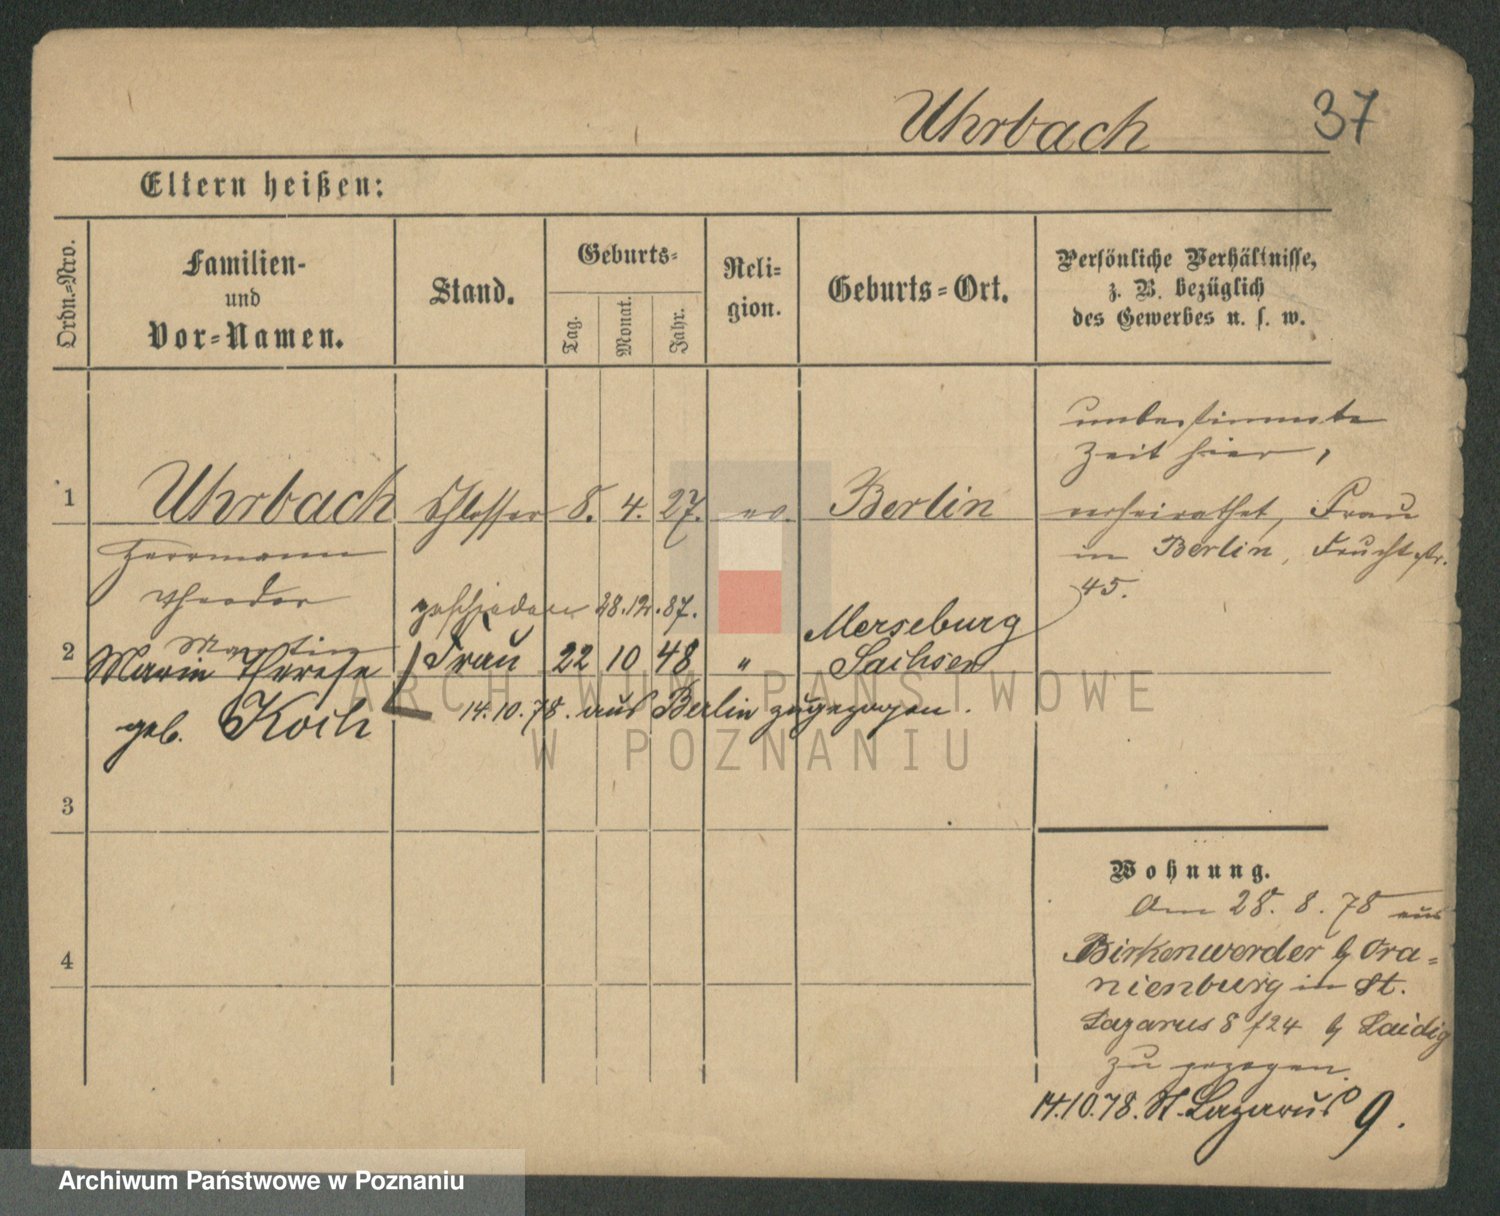 Uhrbach 37
Eltern heißen:
Ordn.-Nro.
Familien-
und
Vor-Namen.
Stand.
Geburts-
Tag.
Monat.
Jahr.
Reli-
gion.
Geburts-Ort.
Persönliche Verhältnisse,
z. B. bezüglich
des Gewerbes u. s. w.
unbestimmte
Zeit hier,
1 Uhrbach Schlosser 8. 4. 27. ev. Berlin verheirathet, Frau
Herrmann in Berlin, Fruchtstr.
Theodor geschieden 28.12.87. 45.
Martin
2 Marie Therese Frau 22 10 48 " Merseburg
Sachsen
geb. Koch 14.10.78. aus Berlin zugezogen.
3
4
Wohnung.
Am 28. 8. 78 aus
Birkenwerder b Ora-
nienburg in St.
Lazarus 8 /24 b Laidig
zu gezogen.
14.10.78. St. Lazarus 9.
ARCHIWUM PAŃSTWOWE
W POZNANIU
Archiwum Państwowe w Poznaniu